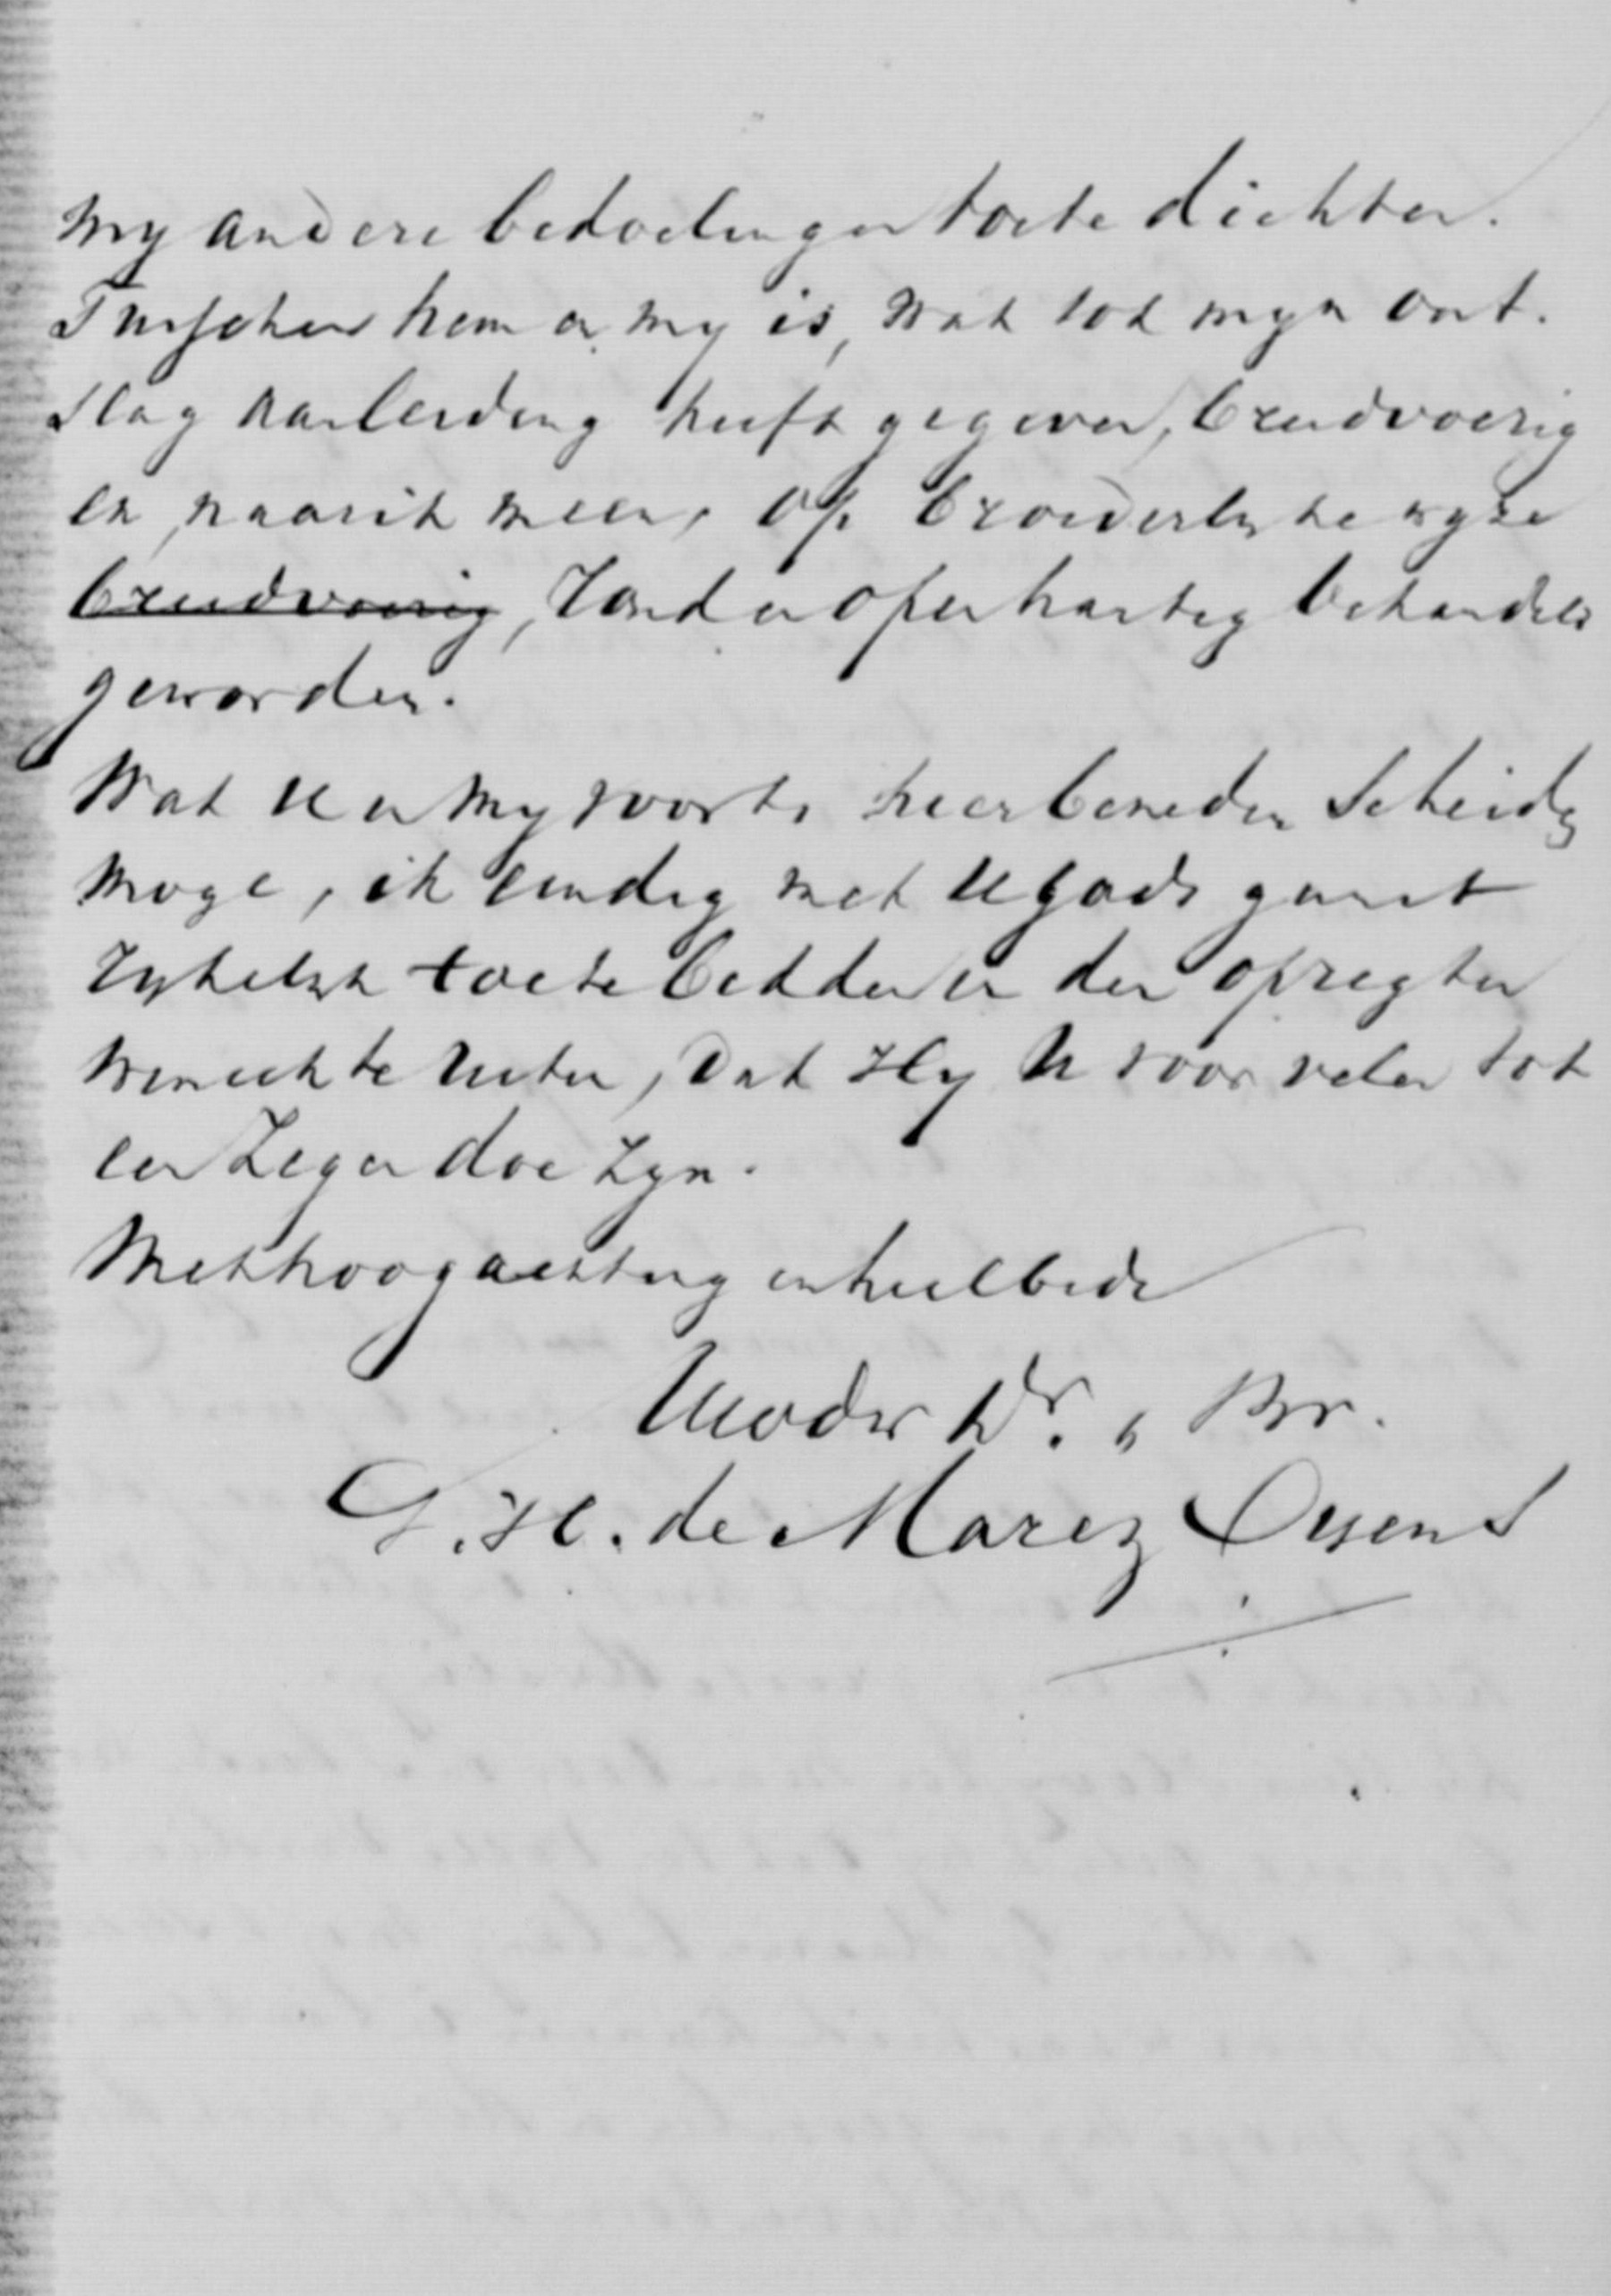 my andere bedoelingen toete dichten.
Tusschen hem en my is, wat tot myn ont-
slag aanleiding heeft gegeven, breedvoerig
en, naar ik meen, op broederlyke wyze
breedvoerig, rond en openhartig behandeld
geworden.
Wat U en my voorts hier beneden scheide
moge, ik eindig met U Gods gunst
rykelyk toete bidden en den opregten
wensch te uiten, dat Hy U voor velen tot
een Zegen doe zyn.
Met hoogachting en heilbede
Uwdw Dr. & Br.
G. H. de Marez Oyens